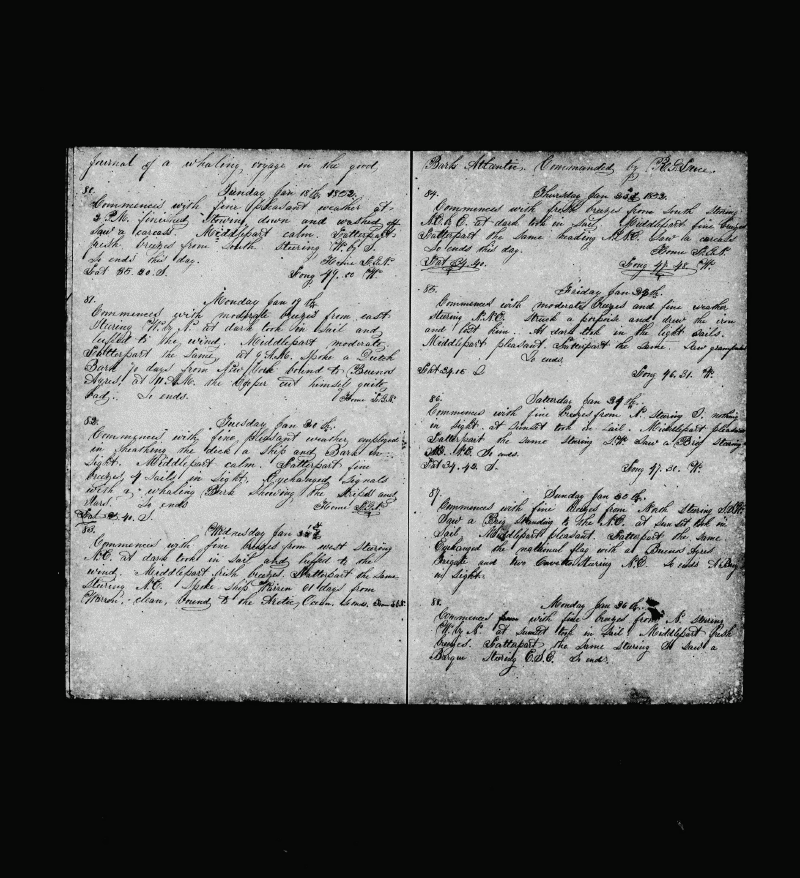 Journal of a whaling voyage in the good
80. Sunday Jan 18th 1852
Commences with fine pleasant weather at
2 P.M. finished stowing down and washed off
Saw a carcass. Middlepart calm. Latterpart
fresh breezes from South steering W. by S.
So ends this day.
Lat 35.20 S. Long 47.00 W.
81. Monday Jan 19th
Commences with moderate breezes from east
steering W. by N. at dark took in sail and
luffed to the wind, Middlepart moderate.
Latterpart the same, at 9 A.M. Spoke a Dutch
Bark 70 days from New York bound to Buenos
Ayres, at 11 A.M. the Cooper cut himself quite
bad. So ends.
82. Tuesday Jan 20th
Commences with fine, pleasant weather, employed
in breaking the deck a Ship and Bark in
sight. Middlepart calm. Latterpart fine
breezes, 4 Sails in sight. Exchanged Signals
with a whaling Bark Showing the Stripes and
Stars. So ends
40. S.
83. Wednesday Jan
Commences with fine breezes from west steering
N.E. at dark took in sail and luffed to the
wind, Middlepart fresh breezes. Latterpart the same
steering N.E. Spoke Ship Warren 61 days from
Warren, clean, bound to the Arctic Ocean.
Bark Atlantic, Commanded by
84. Thursday Jan 1852.
Commences with fresh breezes from South steering
at dark took in sail, Middlepart fine breezes
Latterpart the same heading N.N.E. Saw a carcass
So ends this day.
Lat 34.40. Long 47.45 W.
85. Friday Jan
Commences with moderate breezes and fine weather
steering N.N.E. Struck a porpoise and drew the iron
and lost him. At dark took in the light sails.
Middlepart pleasant. Latterpart the same. Saw grampuses
So ends
Lat 34.15 S Long 46.31. W.
86. Saturday Jan 24th
Commences with fine breezes from N. steering S. nothing
in sight. at sunset took in sail. Middlepart pleasant
Latterpart the same steering Saw a Brig steering
N.E. So ends.
Lat 34.42. S. Long 47.30. W.
87. Sunday Jan
Commences with fine breezes from North steering
Saw a Brig Standing to the N.E. at sunset took in
Sail Middlepart pleasant. Latterpart the same
Exchanged the national flag with a Buenos Ayres
Brigate and two steering N.E. So ends
in sight.
88. Monday Jan 26th
Commences with fine breezes from N. steering
W. by N. at sunset took in sail. Middlepart fresh
breezes. Latterpart the same steering Saw a
Barque steering E.S.E. So ends.